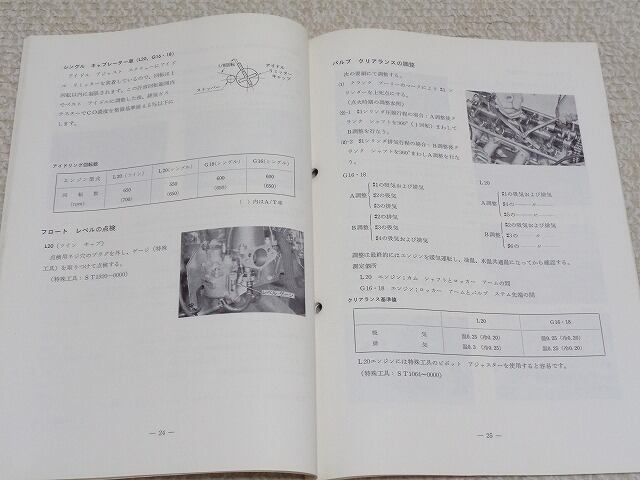 シングル キャブレーター車 (L20, G16・18)
アイドル アジャスト スクリューにアイド
ル リミッターを装着しているので、回転は1
回転以内に制限されます。この許容回転範囲内
でベスト アイドルに調整した後、排気ガス
テスターでCO濃度を整備基準値4.5%以下に
します。
1/8回転
アイドル
リミッター
キャップ
ストッパー
アイドリング回転数
エンジン型式 L20 (ツイン) L20(シングル) G18(シングル) G16(シングル)
回転数 650 550 600 600
(rpm) (700) (650) (650) (650)
( ) 内はA/T車
フロート レベルの点検
L20 (ツイン キャブ)
点検用ネジ穴のプラグを外し、ゲージ (特殊
工具) を取りつけて点検する。
レベルゲージ
— 24 —
バルブ クリアランスの調整
次の要領にて調整する。
(1) クランク プーリーのマークにより #1シ
リンダーを上死点にする。
(点火時期の調整参照)
(2)-1 #1シリンダ圧縮行程の場合:A調整後ク
ランク シャフトを360° (1回転) まわして
B調整を行なう。
(2)-2 #1シリンダ排気行程の場合:B調整後ク
ランク シャフトを360°まわしA調整を行な
う。
G16・18
A調整 #1の吸気および排気
#2の吸気
#3の排気
B調整 #2の排気
#3の吸気
#4の吸気および排気
L20
A調整 #1の吸気および排気
#4の—— 〃 ——
#5の—— 〃 ——
B調整 #2の吸気および排気
#3の—— 〃 ——
#6の—— 〃 ——
調整は最終的にはエンジンを暖気運転し、油温、水温共適温になってから確認する。
測定個所
L20 エンジン;カム シャフトとロッカー アームの間
G16・18 エンジン;ロッカー アームとバルブ ステム先端の間
クリアランス基準値
L20 G16・18
吸気 温0.25 (冷0.20) 温0.25 (冷0.20)
排気 温0.3 (冷0.25) 温0.25 (冷0.20)
L20エンジンには特殊工具のピボット アジャスターを使用すると容易です。
— 25 —